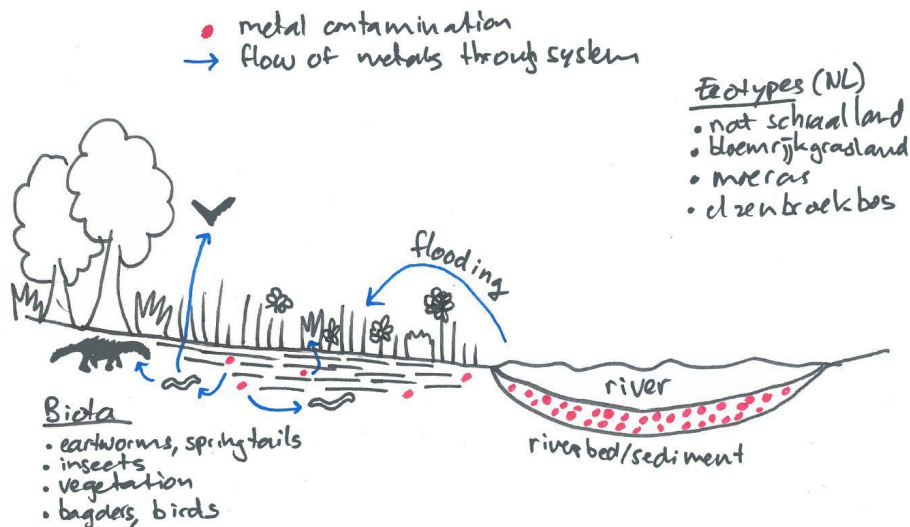 metal contamination
flow of metals through system
Ecotypes (NL)
• nat schraalland
• bloemrijkgrasland
• moeras
• elzenbroekbos
flooding
river
riverbed/sediment
Biota
• eartworms, springtails
• insects
• vegetation
• bagders, birds